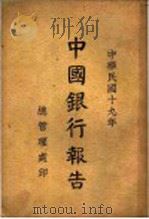 中華民國十九年
中國銀行報告
總管理處印